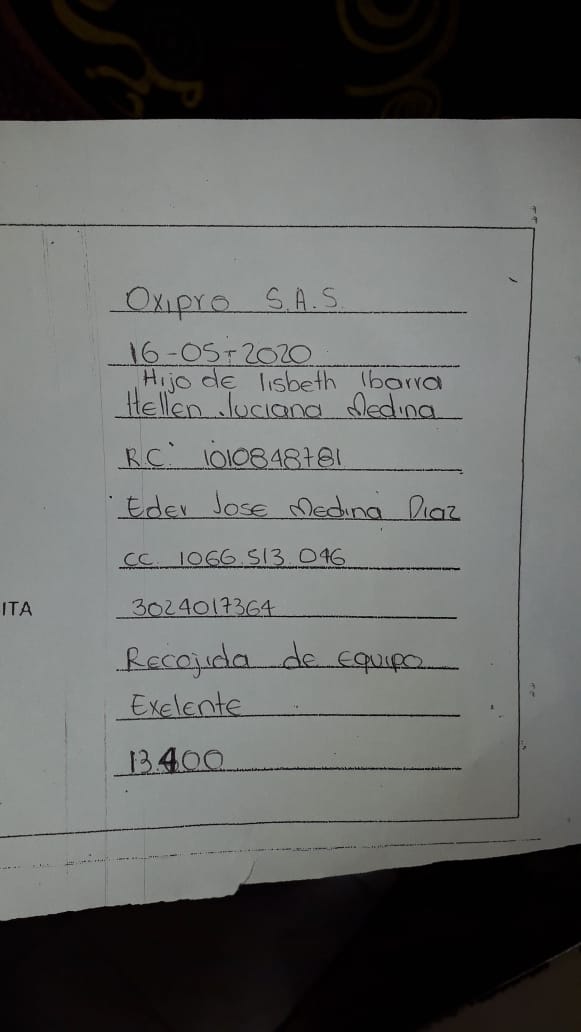 Oxipro S.A.S.
16-05-2020
Hijo de lisbeth Ibarra
Hellen Luciana Medina
R.C. 1010848781
Eder Jose Medina Diaz
CC. 1066.513.046
ITA 3024017364
Recojida de equipo
Exelente
13.400